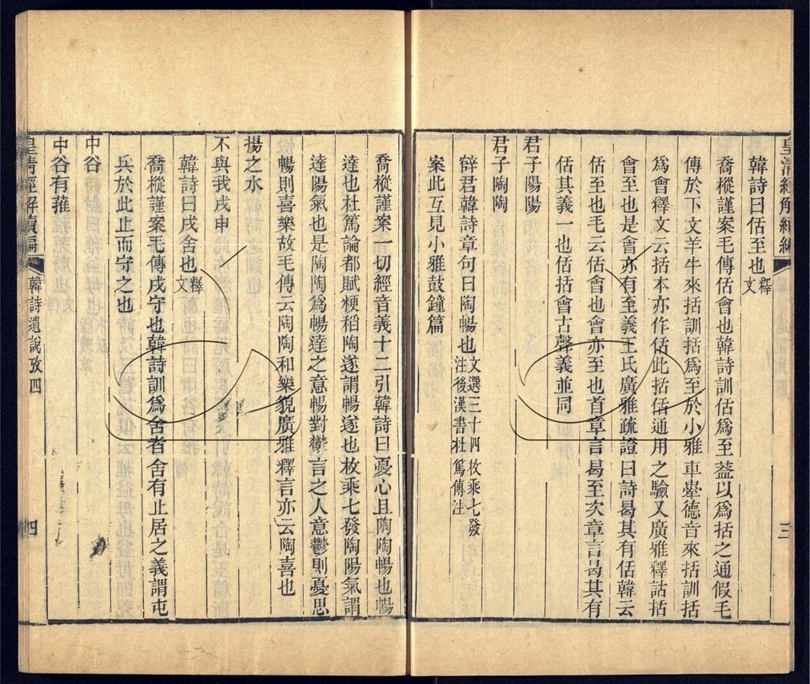 皇清經解續編
三
韓詩曰佸至也釋文
喬樅謹案毛傳佸會也韓詩訓佸爲至葢以爲括之通假毛
傳於下文羊牛來括訓括爲至於小雅車舝德音來括訓括
爲會釋文云括本亦作佸此括佸通用之驗又廣雅釋詁括
會至也是會亦有至義王氏廣雅疏證曰詩曷其有佸韓云
佸至也毛云佸會也會亦至也首章言曷至次章言曷其有
佸其義一也佸括會古聲義並同
君子陽陽
君子陶陶
薛君韓詩章句曰陶暢也文選三十四枚乘七發注後漢書杜篤傳注
案此互見小雅鼓鐘篇
喬樅謹案一切經音義十二引韓詩曰憂心且陶陶暢也暢
達也杜篤論都賦粳稻陶遂謂暢遂也枚乘七發陶陽氣謂
達陽氣也是陶陶爲暢達之意暢對鬱言之人意鬱則憂思
暢則喜樂故毛傳云陶陶和樂貌廣雅釋言亦云陶喜也
揚之水
不與我戍申
韓詩曰戍舍也釋文
喬樅謹案毛傳戍守也韓詩訓爲舍者舍有止居之義謂屯
兵於此止而守之也
中谷
中谷有蓷
皇清經解續編
韓詩遺說攷四
四